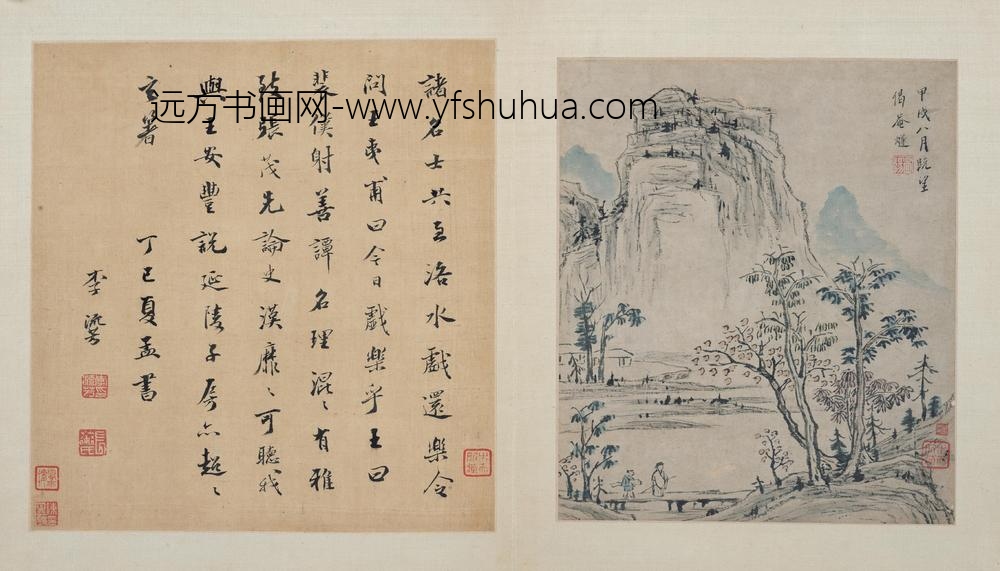 諸名士共至洛水戲還樂令
問王夷甫曰今日戲樂乎王曰
裴僕射善譚名理混〻有雅
致張茂先論史漢靡〻可聽我
與王安豐說延陵子房亦超〻
玄箸 丁巳夏孟書
李瀅
甲戌八月既望
偈菴
远方书画网-www.yfshuhua.com